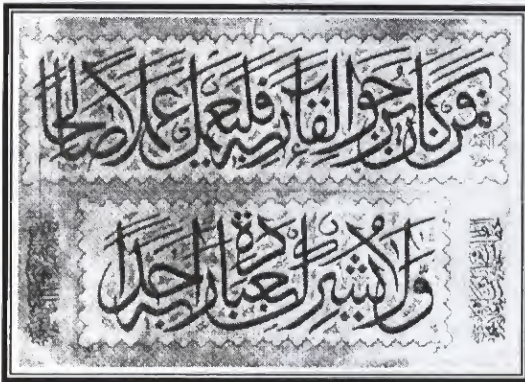 فمن كان يرجوا لقاء ربه فليعمل عملا صالحا
ولا يشرك بعبادة ربه احدا